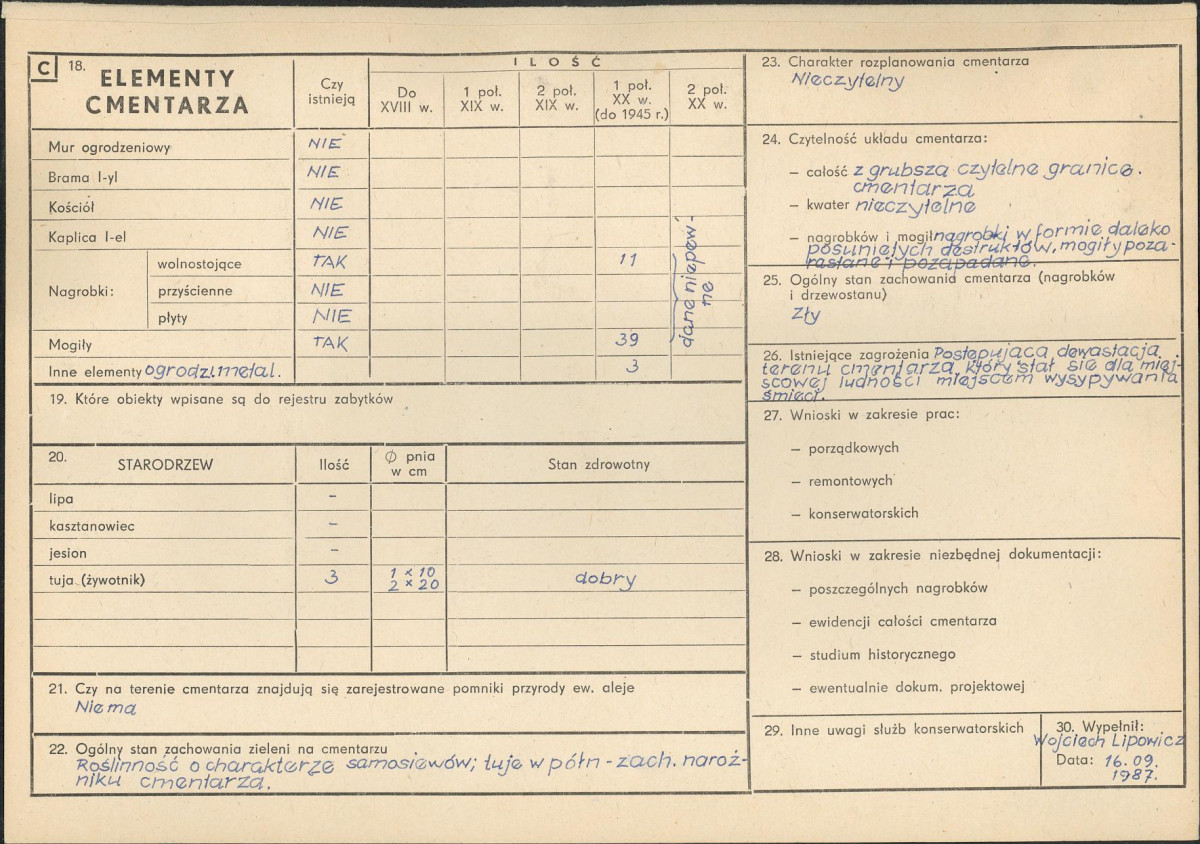 C 18. ELEMENTY CMENTARZA
Czy istnieją
ILOŚĆ
Do XVIII w.
1 poł. XIX w.
2 poł. XIX w.
1 poł. XX w. (do 1945 r.)
2 poł. XX w.
Mur ogrodzeniowy NIE
Brama I-yl NIE
Kościół NIE
Kaplica I-el NIE
Nagrobki:
wolnostojące TAK 11
przyścienne NIE
płyty NIE
Mogiły TAK 39
Inne elementy ogrodz. metal. 3
dane niepew-
ne
19. Które obiekty wpisane są do rejestru zabytków
20. STARODRZEW Ilość Ø pnia w cm Stan zdrowotny
lipa –
kasztanowiec –
jesion –
tuja (żywotnik) 3 1 × 10 2 × 20 dobry
21. Czy na terenie cmentarza znajdują się zarejestrowane pomniki przyrody ew. aleje
Nie ma
22. Ogólny stan zachowania zieleni na cmentarzu
Roślinność o charakterze samosiewów; tuje w półn-zach. naroż-
niku cmentarza.
23. Charakter rozplanowania cmentarza
Nieczytelny
24. Czytelność układu cmentarza:
– całość z grubsza czytelne granice.
cmentarza
– kwater nieczytelne
– nagrobków i mogił nagrobki w formie daleko
posuniętych destruktów, mogiły poza-
rastane i pozapadane.
25. Ogólny stan zachowania cmentarza (nagrobków
i drzewostanu)
Zły
26. Istniejące zagrożenia Postępująca dewastacja
terenu cmentarza, który stał się dla miej-
scowej ludności miejscem wysypywania
śmieci.
27. Wnioski w zakresie prac:
– porządkowych
– remontowych
– konserwatorskich
28. Wnioski w zakresie niezbędnej dokumentacji:
– poszczególnych nagrobków
– ewidencji całości cmentarza
– studium historycznego
– ewentualnie dokum. projektowej
29. Inne uwagi służb konserwatorskich
30. Wypełnił:
Wojciech Lipowicz
Data: 16.09.
1987.